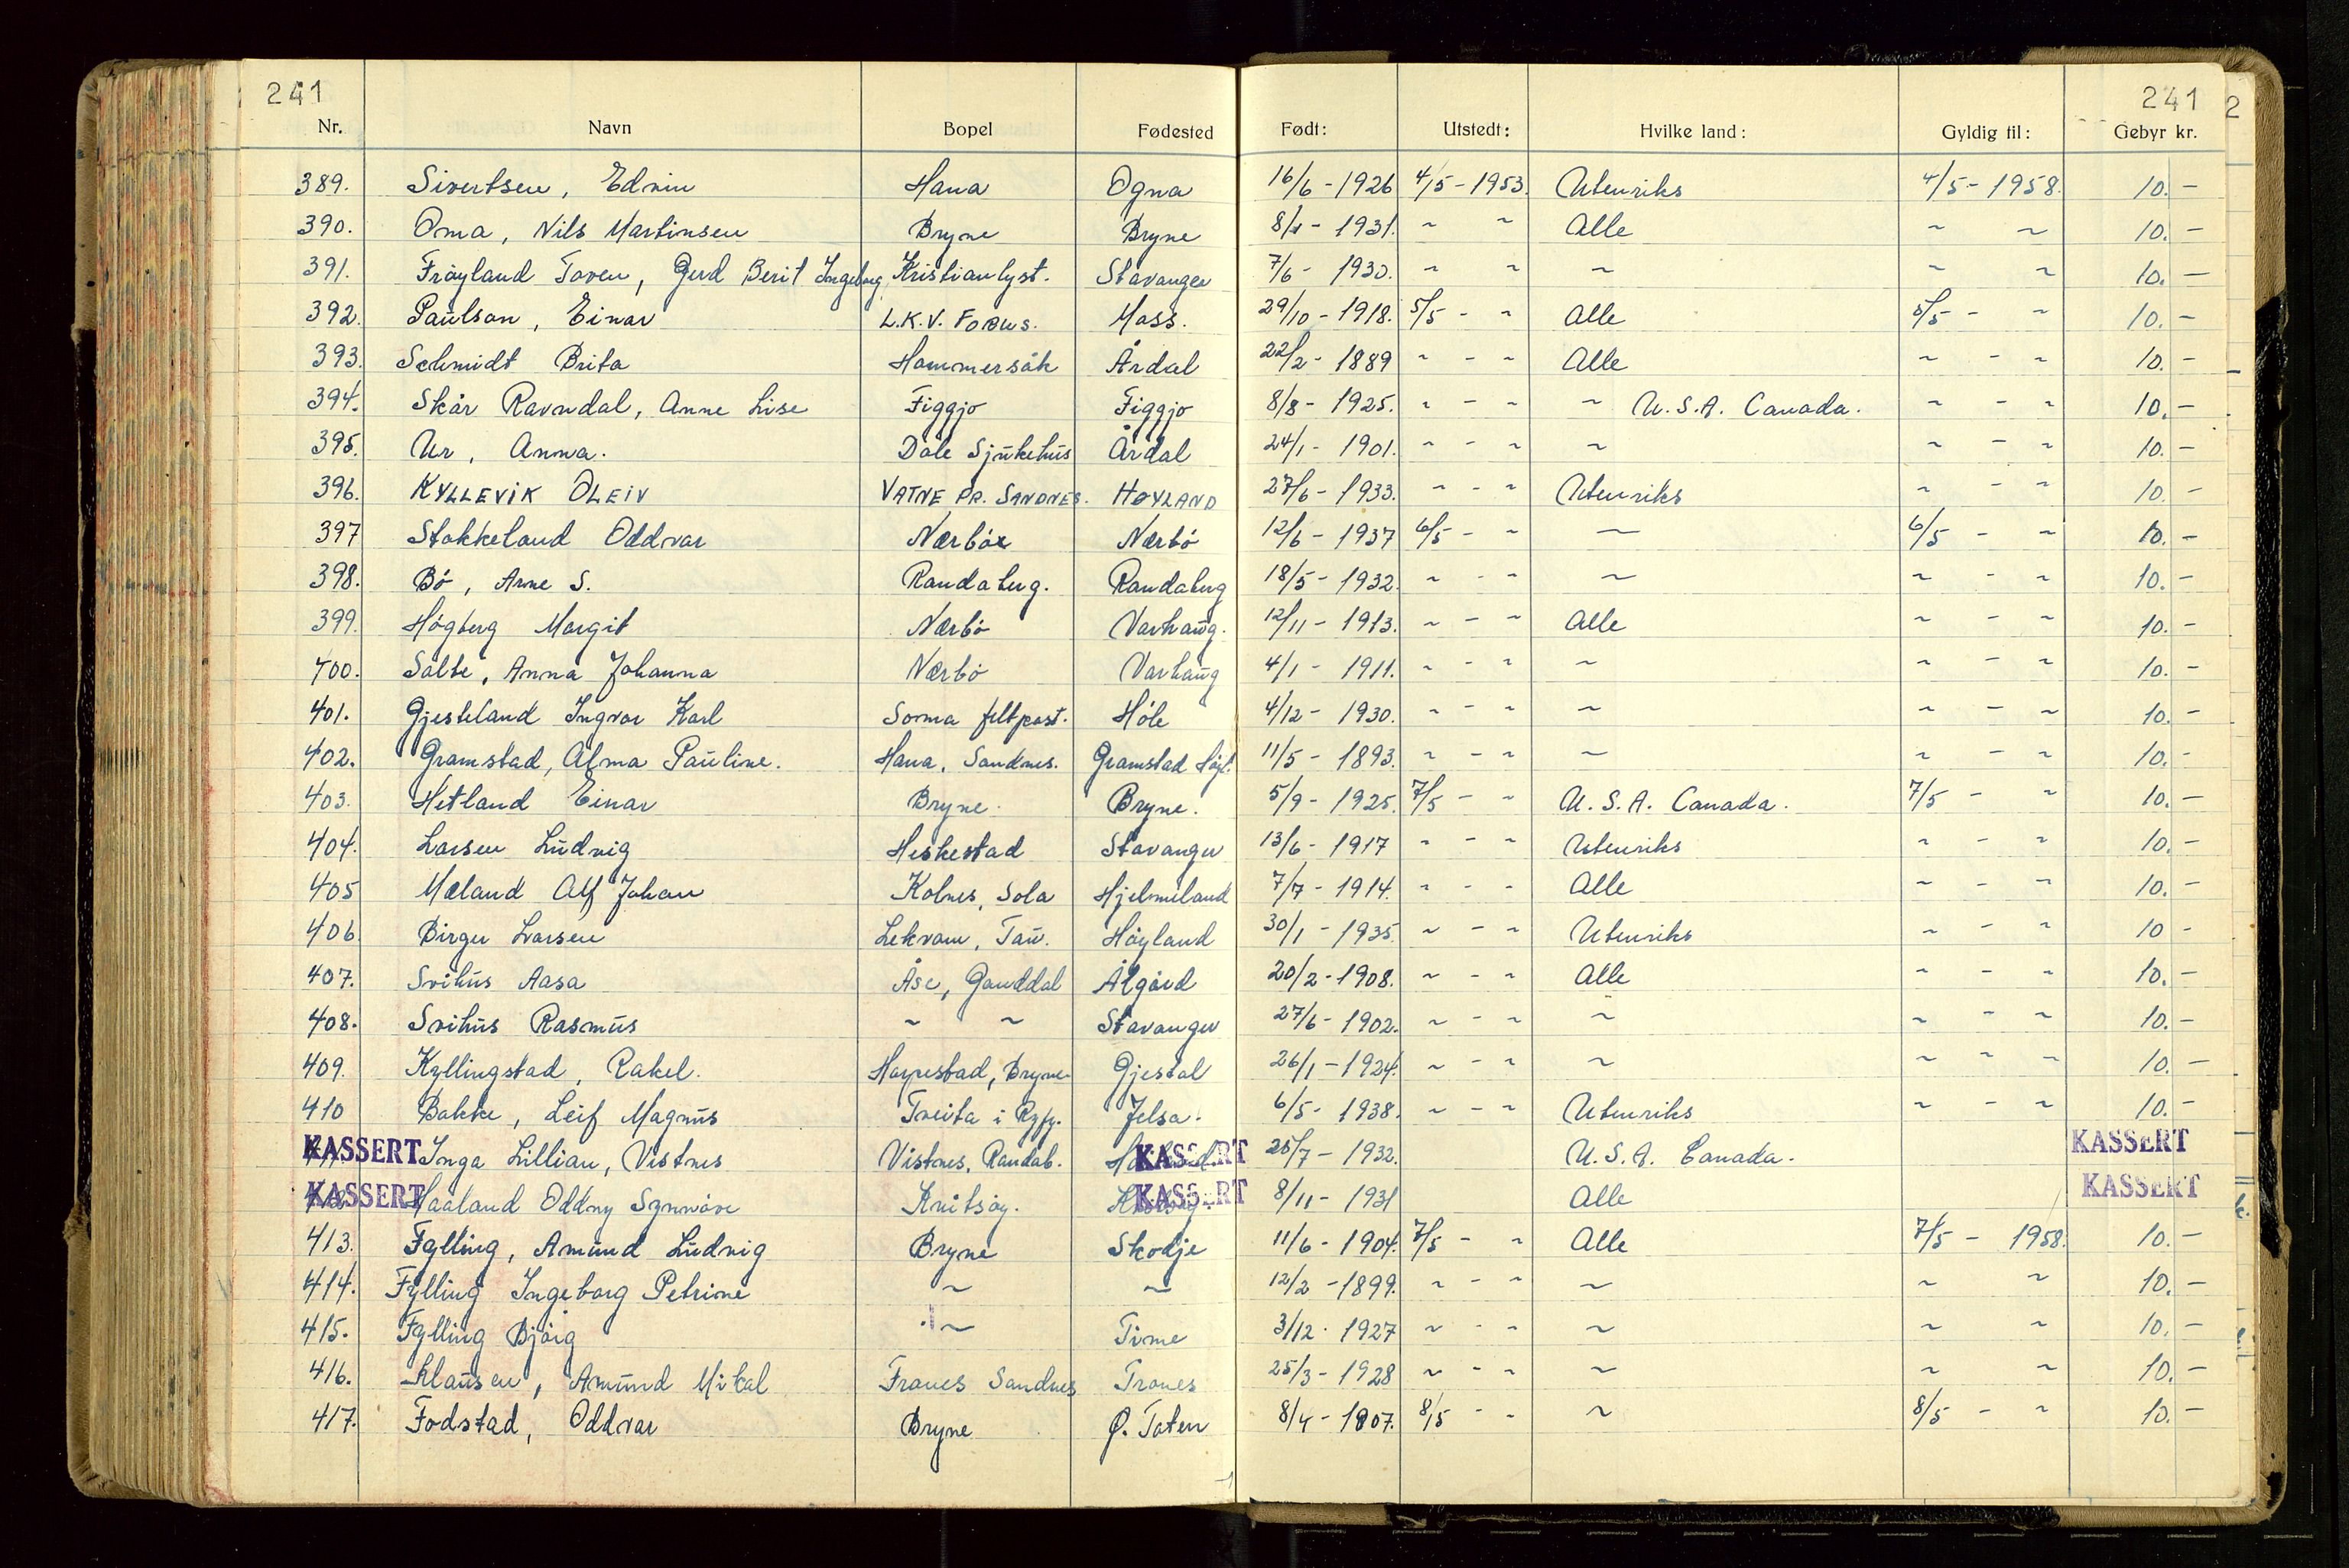 241 241 2
Nr. Navn Bopel Fødested Født: Utstedt: Hvilke land: Gyldig til: Gebyr kr.
389. Sivertsen, Edvin Hana Ogna 16/6 - 1926 4/5 - 1953. Utenriks 4/5 - 1958. 10. -
390. Oma, Nils Martinsen Bryne Bryne 8/1 - 1931. ~ ~ Alle ~ ~ 10. -
391. Fröyland Toven, Gerd Berit Ingeborg Kristianlyst. Stavanger 7/6 - 1930. ~ ~ ~ ~ ~ 10. -
392. Paulson, Einar L.K.V. Focus. Moss. 29/10 - 1918. 5/5 - ~ Alle 5/5 - ~ 10. -
393. Schmidt Brita Hommersåk Årdal 22/2 - 1889 ~ - ~ Alle ~ - ~ 10. -
394. Skår Ravndal, Anne Lise Figgjo Figgjo 8/8 - 1925. ~ - ~ ~ U.S.A. Canada. ~ - ~ 10. -
395. Ur, Anna. Dale Sjukehus Årdal 24/1 - 1901. ~ - ~ ~ ~ - ~ 10. -
396. KYLLEVIK OLEIV VATNE PR. SANDNES. HØYLAND 27/6 - 1933. ~ - ~ Utenriks ~ - ~ 10. -
397 Stokkeland Oddvar Nærbö Nærbö 12/6 - 1937 6/5 - ~ ~ 6/5 - ~ 10. -
398. Bö, Arne S. Randaberg. Randaberg 18/5 - 1932. ~ - ~ ~ ~ - ~ 10. -
399. Högberg Margit Nærbö Varhaug. 12/11 - 1913. ~ - ~ Alle ~ - ~ 10. -
400. Salte, Anna Johanna Nærbö Varhaug 4/1 - 1911. ~ - ~ ~ ~ - ~ 10. -
401. Gjesteland Ingvar Karl Soma feltpost. Höle 4/12 - 1930. ~ - ~ ~ ~ - ~ 10. -
402. Gramstad, Alma Pauline. Hana, Sandnes. Gramstad Högl. 11/5 - 1893. ~ - ~ ~ ~ - ~ 10. -
403. Hetland Einar Bryne. Bryne. 5/9 - 1925. 7/5 - ~ U.S.A. Canada. 7/5 - ~ 10. -
404. Larsen Ludvig Heskestad Stavanger 13/6 - 1917 ~ - ~ Utenriks ~ - ~ 10. -
405 Mæland Alf Johan Kolnes, Sola Hjelmeland 7/7 - 1914. ~ - ~ Alle ~ - ~ 10. -
406 Birger Larsen Lekvam, Tau. Höyland 30/1 - 1935. ~ - ~ Utenriks ~ - ~ 10 -
407. Svihus Aasa Åse, Ganddal Ålgård 20/2 - 1908. ~ - ~ Alle ~ - ~ 10. -
408. Svihus Rasmus ~ ~ Stavanger 27/6 - 1902. ~ - ~ ~ ~ - ~ 10. -
409. Kyllingstad, Rakel. Harpestad, Bryne. Gjestal 26/1 - 1924. ~ - ~ ~ ~ - ~ 10. -
410 Bakke, Leif Magnus Tveita i Ryfy. Jelsa. 6/5 - 1938. ~ - ~ Utenriks ~ - ~ 10. -
KASSERT Inga Lillian, Vistnes Vistnes, Randab. KASSERT 25/7 - 1932. U.S.A. Canada. KASSERT
KASSERT Haaland Oddny Synnöve Kvitsöy. KASSERT 8/11 - 1931 Alle KASSERT
413. Fylling, Amund Ludvig Bryne Skodje 11/6 - 1904. 7/5 - ~ Alle 7/5 - 1958. 10. -
414. Fylling Ingeborg Petrine ~ ~ 12/2 - 1899. ~ - ~ ~ ~ ~ 10. -
415. Fylling Björg ~ Time 3/12 - 1927 ~ - ~ ~ ~ ~ 10. -
416. Klausen, Amund Mikal Trones Sandnes Trones 25/3 - 1928 ~ - ~ ~ ~ ~ 10. -
417. Fodstad, Oddvar Bryne Ø. Toten 8/4 - 1907. 8/5 - ~ ~ 8/5 - ~ 10. -